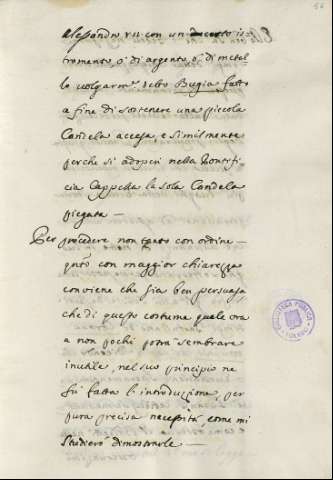 56
Alessandro VII con un certo is
tromento ò di argento ò di metal
lo volgarm.e detto Bugia fatto
a fine di sostenere una piccola
Candela accesa, e similmente
perche si adoperi nella Pontifi
cia Cappella la sola Candela
piegata —
Per procedere non tanto con ordine —
qnto con maggior chiarezza
conviene che sia ben persuasa,
che di questo costume quale ora
a non pochi potrà sembrare
inutile, nel suo principio ne
fù fatta l'introduzione, per
pura precisa necessità, come mi
studierò dimostrarle —
BIBLIOTECA PUBLICA
TOLEDO